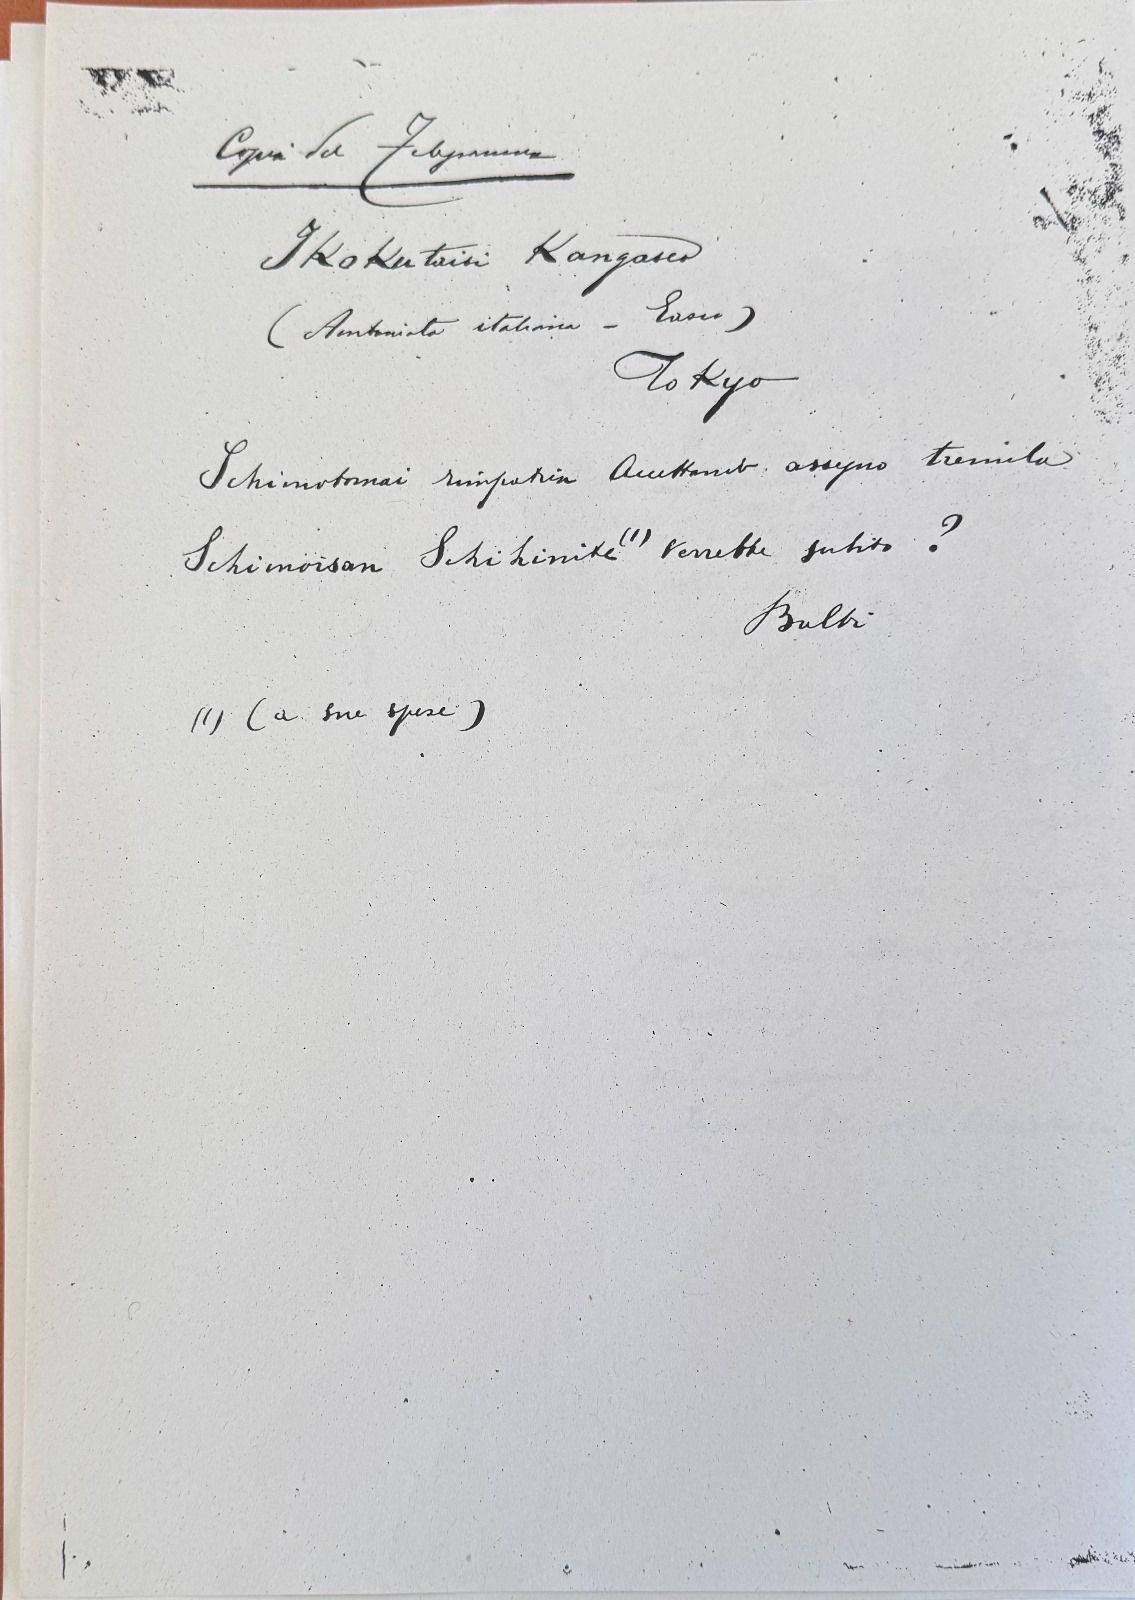 Copia del Telegramma
Ikokutaisi Kangaseo
( italiana - )
Tokyo
Schimotomai rimpatria Accettando assegno tremila
Schimoisan Schihinite (1) verrebbe subito ?
Balbi
(1) (a sue spese)